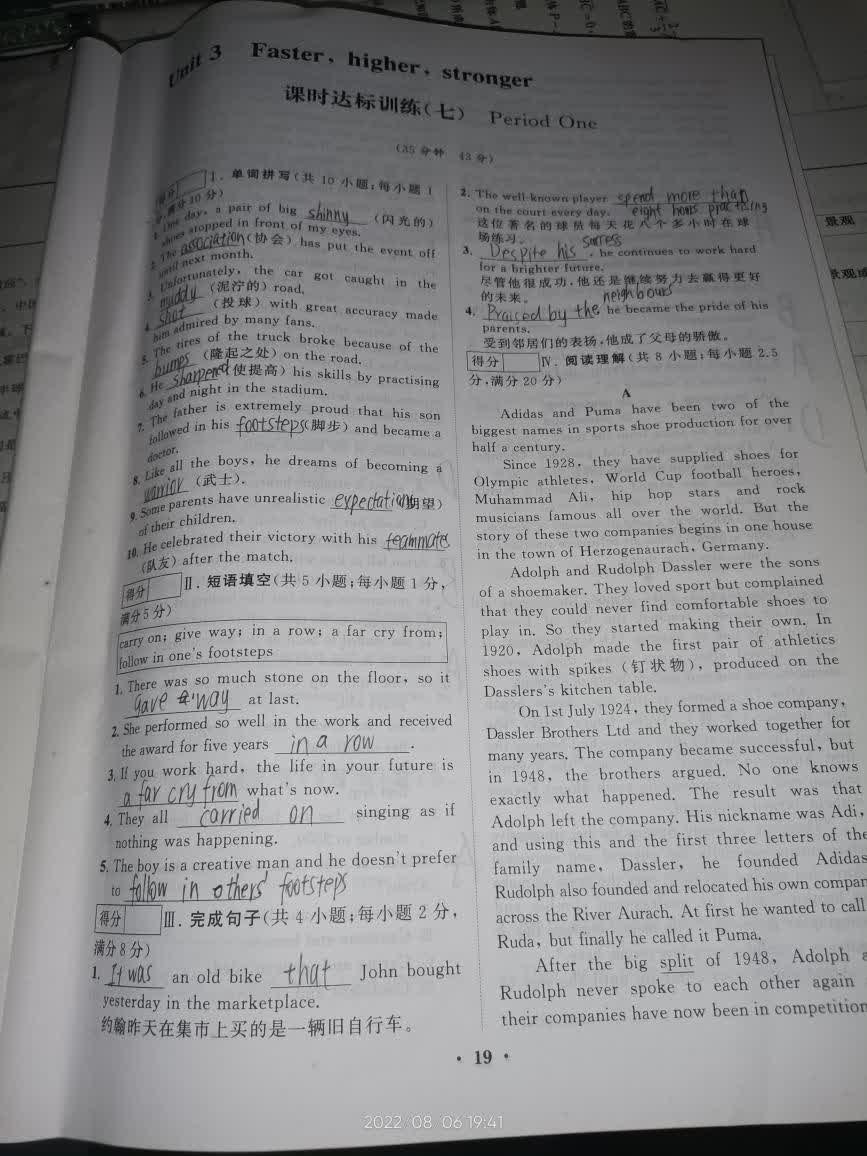 Unit 3 Faster, higher, stronger
课时达标训练(七) Period One
(35分钟 43分)
得分 Ⅰ. 单词拼写(共10小题;每小题1
分,满分10分)
1. One day, a pair of big shinny (闪光的)
shoes stopped in front of my eyes.
2. The association(协会) has put the event off
until next month.
3. Unfortunately, the car got caught in the
muddy (泥泞的) road.
4. shot (投球) with great accuracy made
him admired by many fans.
5. The tires of the truck broke because of the
bumps (隆起之处) on the road.
6. He sharpened(使提高) his skills by practising
day and night in the stadium.
7. The father is extremely proud that his son
followed in his footsteps(脚步) and became a
doctor.
8. Like all the boys, he dreams of becoming a
warrior (武士).
9. Some parents have unrealistic expectations期望)
of their children.
10. He celebrated their victory with his teammates
(队友) after the match.
得分 Ⅱ. 短语填空(共5小题;每小题1分,
满分5分)
carry on; give way; in a row; a far cry from;
follow in one's footsteps
1. There was so much stone on the floor, so it
gave way at last.
2. She performed so well in the work and received
the award for five years in a row.
3. If you work hard, the life in your future is
a far cry from what's now.
4. They all carried on singing as if
nothing was happening.
5. The boy is a creative man and he doesn't prefer
to follow in others' footsteps
得分 Ⅲ. 完成句子(共4小题;每小题2分,
满分8分)
1. It was an old bike that John bought
yesterday in the marketplace.
约翰昨天在集市上买的是一辆旧自行车。
2. The well-known player spend more than
on the court every day. eight hours practicing
这位著名的球员每天花八个多小时在球
场练习。
3. Despite his success, he continues to work hard
for a brighter future.
尽管他很成功,他还是继续努力去赢得更好
的未来。
4. Praised by the neighbours he became the pride of his
parents.
受到邻居们的表扬,他成了父母的骄傲。
得分 Ⅳ. 阅读理解(共8小题;每小题2.5
分,满分20分)
A
Adidas and Puma have been two of the
biggest names in sports shoe production for over
half a century.
Since 1928, they have supplied shoes for
Olympic athletes, World Cup football heroes,
Muhammad Ali, hip hop stars and rock
musicians famous all over the world. But the
story of these two companies begins in one house
in the town of Herzogenaurach, Germany.
Adolph and Rudolph Dassler were the sons
of a shoemaker. They loved sport but complained
that they could never find comfortable shoes to
play in. So they started making their own. In
1920, Adolph made the first pair of athletics
shoes with spikes (钉状物), produced on the
Dasslers's kitchen table.
On 1st July 1924, they formed a shoe company,
Dassler Brothers Ltd and they worked together for
many years. The company became successful, but
in 1948, the brothers argued. No one knows
exactly what happened. The result was that
Adolph left the company. His nickname was Adi,
and using this and the first three letters of the
family name, Dassler, he founded Adidas
Rudolph also founded and relocated his own compan
across the River Aurach. At first he wanted to call
Ruda, but finally he called it Puma.
After the big split of 1948, Adolph a
Rudolph never spoke to each other again
their companies have now been in competition
• 19 •
景观
2022 08 06 19:41